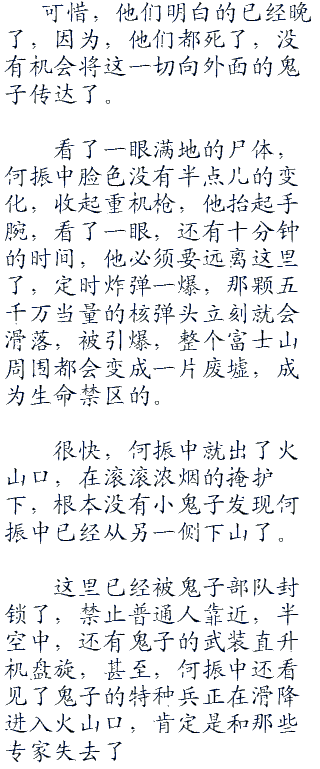 可惜，他们明白的已经晚
了，因为，他们都死了，没
有机会将这一切向外面的鬼
子传达了。
看了一眼满地的尸体，
何振中脸色没有半点儿的变
化，收起重机枪，他抬起手
腕，看了一眼，还有十分钟
的时间，他必须要远离这里
了，定时炸弹一爆，那颗五
千万当量的核弹头立刻就会
滑落，被引爆，整个富士山
周围都会变成一片废墟，成
为生命禁区的。
很快，何振中就出了火
山口，在滚滚浓烟的掩护
下，根本没有小鬼子发现何
振中已经从另一侧下山了。
这里已经被鬼子部队封
锁了，禁止普通人靠近，半
空中，还有鬼子的武装直升
机盘旋，甚至，何振中还看
见了鬼子的特种兵正在滑降
进入火山口，肯定是和那些
专家失去了